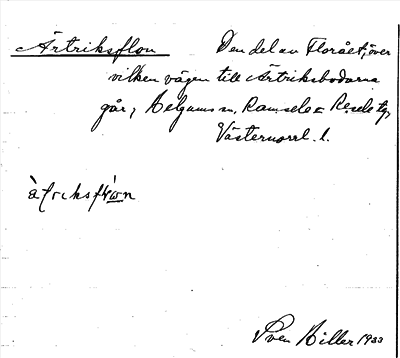 Ärtriksflon Den del av Florået, över
vilken vägen till Ärtriksbodarna
går, Helgums sn, Ramsele o Resele tg,
Västernorrl. l.
Sven Hiller 1933